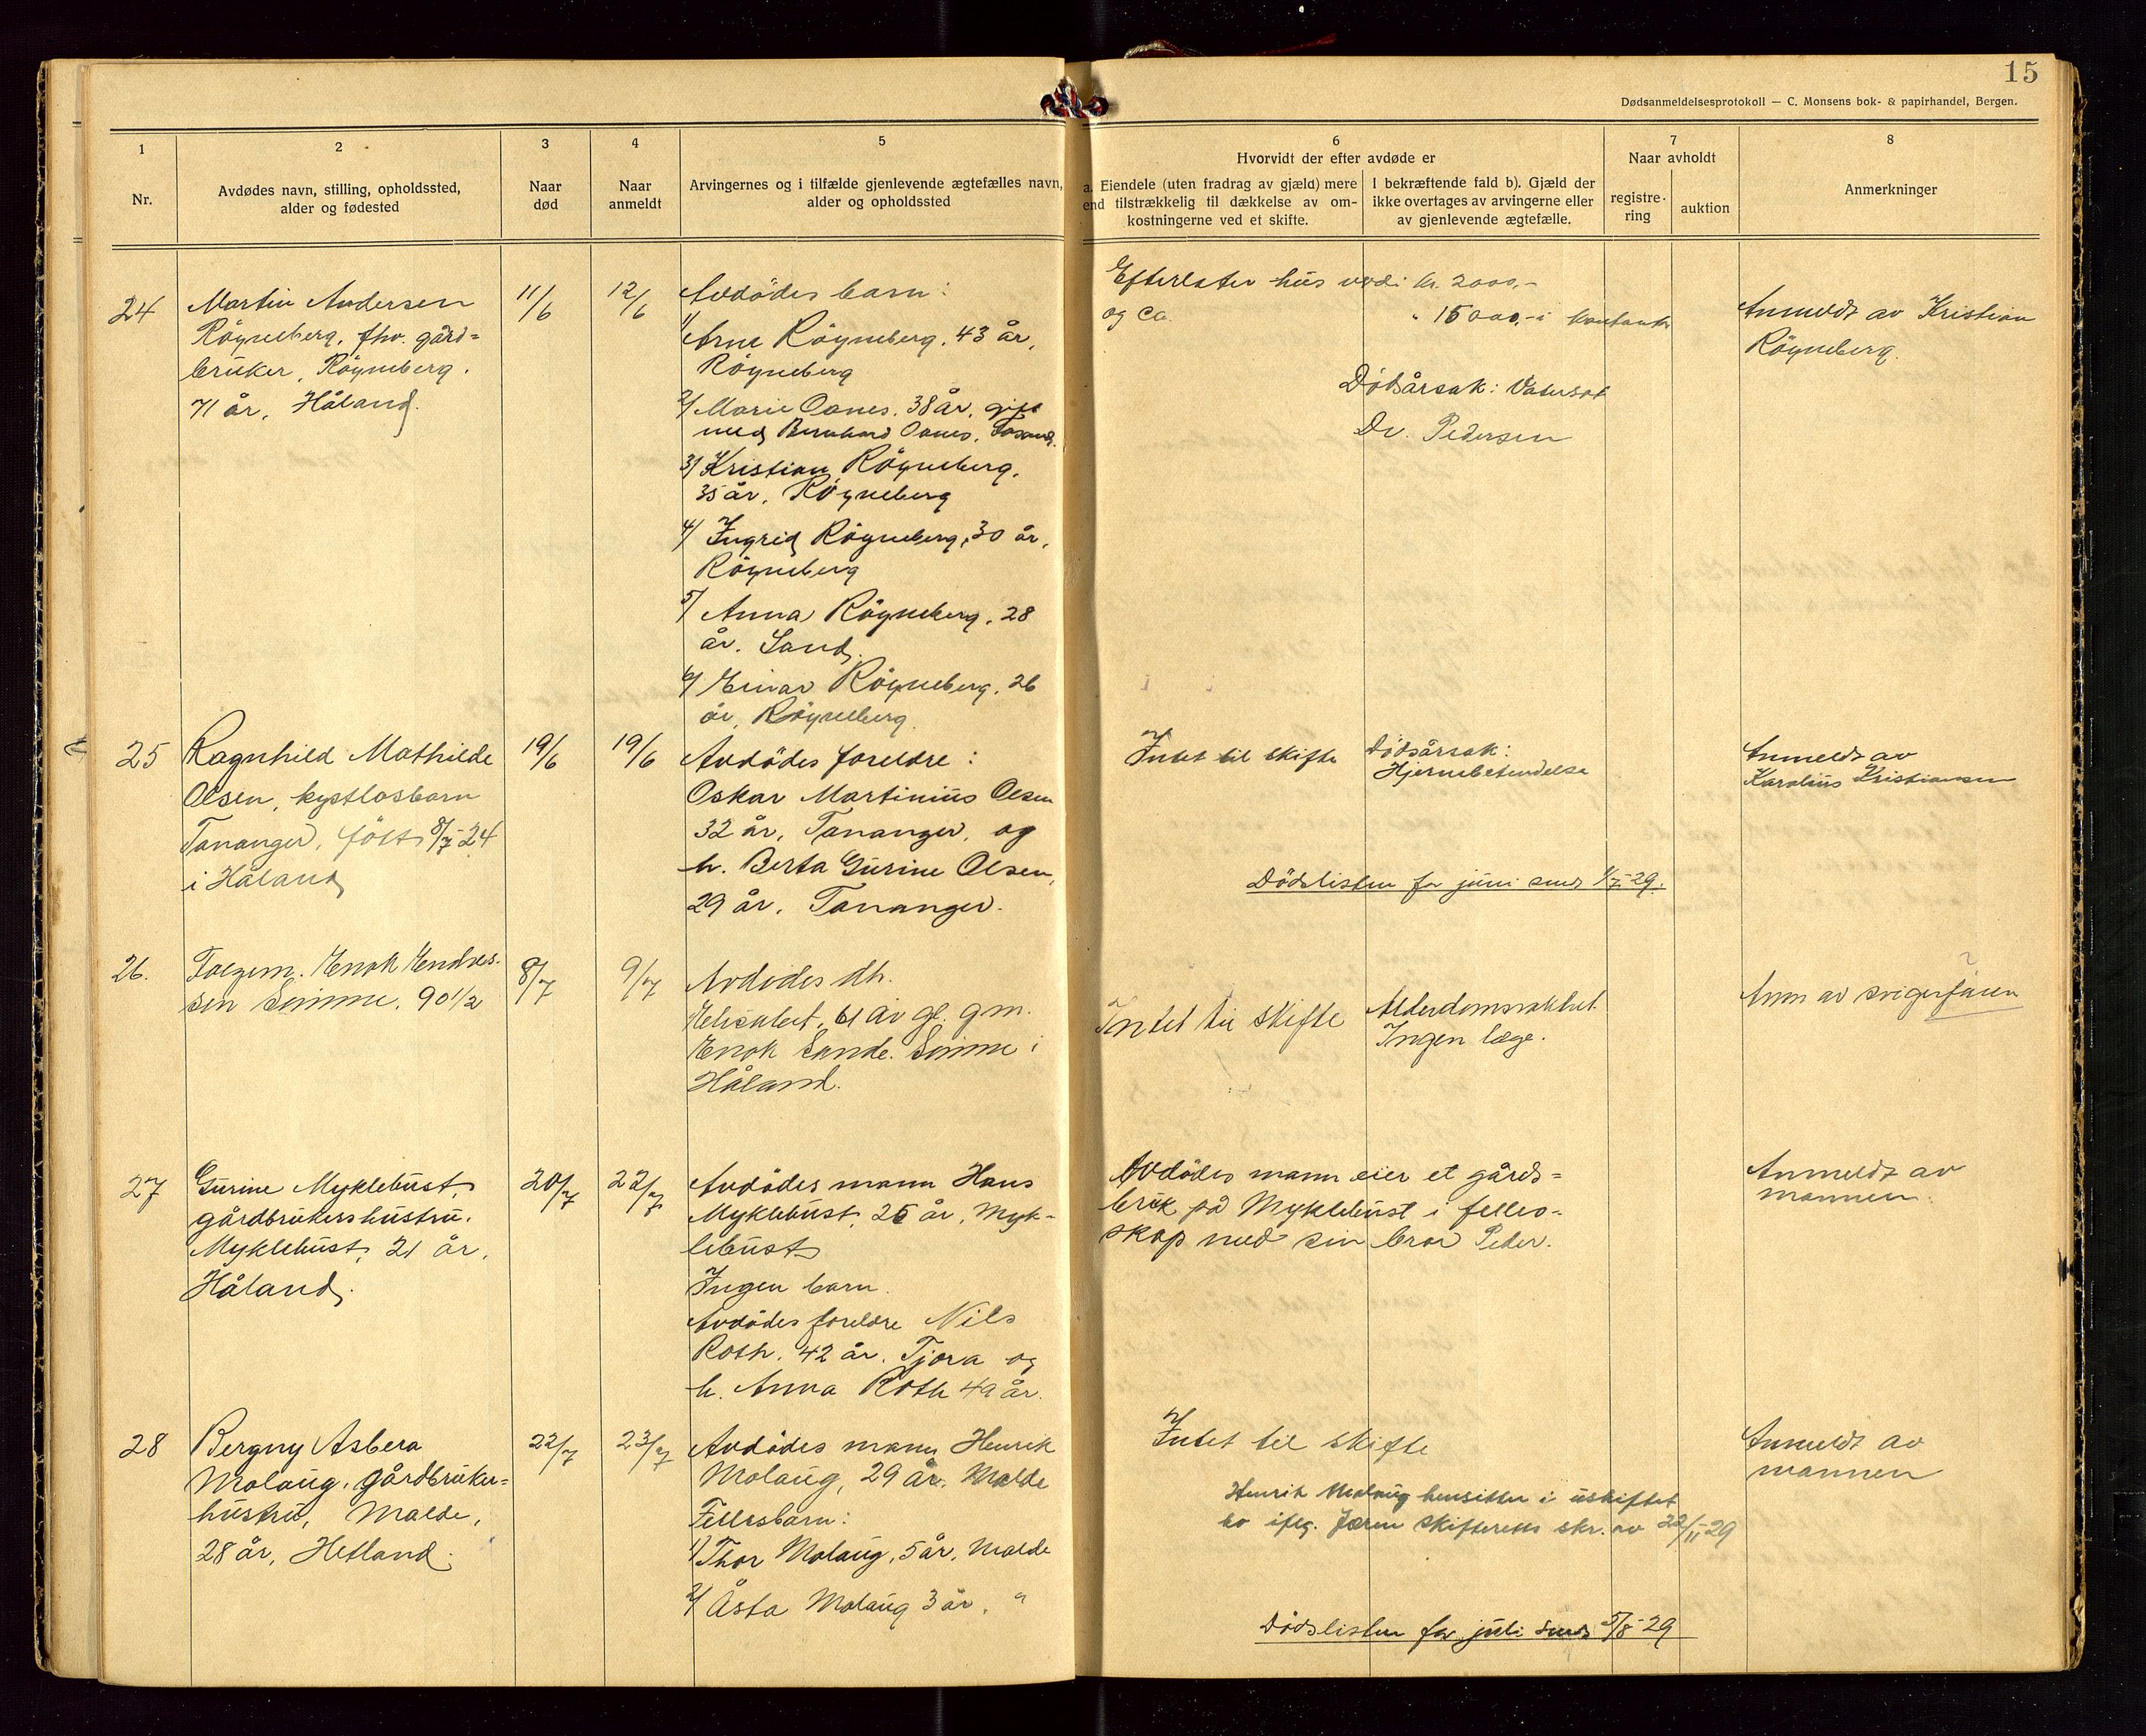 15
Dødsanmeldelsesprotokoll — C. Monsens bok- & papirhandel, Bergen.
1
Nr.
2
Avdødes navn, stilling, opholdssted,
alder og fødested
3
Naar
død
4
Naar
anmeldt
5
Arvingernes og i tilfælde gjenlevende ægtefælles navn,
alder og opholdssted
6
Hvorvidt der efter avdøde er
a. Eiendele (uten fradrag av gjæld) mere
end tilstrækkelig til dækkelse av om-
kostningerne ved et skifte.
I bekræftende fald b). Gjæld der
ikke overtages av arvingerne eller
av gjenlevende ægtefælle.
7
Naar avholdt
registre-
ring
auktion
8
Anmerkninger
24
Martin Andersen
Röyneberg, fhv. gård=
bruker, Röyneberg.
71 år, Håland.
11/6
12/6
Avdödes barn:
1/ Arne Röyneberg, 43 år,
Röyneberg
2/ Marie Oanes, 38 år, gift
med Bernhard Oanes,
3/ Kristian Röyneberg,
35 år, Röyneberg
4/ Ingrid Röyneberg, 30 år,
Röyneberg
5/ Anna Röyneberg, 28
år. Sand.
6/ Einar Röyneberg, 26
år, Röyneberg.
Efterlater hus verdi kr. 2000,-
og ca. " 15000,- i kontanter
Dödsårsak: Vatersot
Dr. Pedersen
Anmeldt av Kristian
Röyneberg.
25
Ragnhild Mathilde
Olsen, kystlosbarn
Tananger, fött 8/7-24
i Håland
19/6
19/6
Avdödes foreldre:
Oskar Martinius Olsen
32 år, Tananger, og
h. Berta Gurine Olsen,
29 år, Tananger.
Intet til skifte
Dödsårsak:
Hjernebetendelse
Anmeldt av
Karolius Kristiansen
Dödslisten for juni send 1/7-29.
26.
Enok Endres-
sen Sömme, 90 1/2
8/7
9/7
Avdødes dtr.
Elisabet, 61 år gl. g.m.
Enok Sande. Sömme i
Håland.
Intet til skifte
Alderdomsvakhet.
Ingen læge.
Anm av svigersönen
27
Gurine Myklebust,
gårdbrukershustru.
Myklebust, 21 år,
Håland.
20/7
22/7
Avdödes mann Hans
Myklebust, 25 år, Myk-
lebust
Ingen barn.
Avdödes foreldre Nils
Roth. 42 år. Tjora og
h. Anna Roth 49 år.
Avdödes mann eier et gårds=
bruk på Myklebust i felles-
skap med sin bror Peder.
Anmeldt av
mannen.
28
Bergny Asbera
Molaug, gårdbruker=
hustru, Malde,
28 år, Hetland.
22/7
23/7
Avdödes mann Henrik
Molaug, 29 år, Malde
Fellesbarn:
1) Thor Molaug, 5 år, Malde
2/ Åsta Molaug 3 år, "
Intet til skifte
Henrik Molaug hensitter i uskiftet
bo iflg. Jæren skifteretts skr. av 22/11-29
Anmeldt av
mannen
Dödslisten for juli send 5/8-29